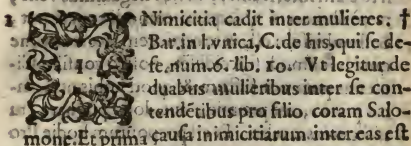 1 INimicitia cadit inter mulieres. †
Bar. in l. vnica, C. de his, qui se de-
fe. num. 6. lib. 10. Vt legitur de
duabus mulieribus inter se con-
tendētibus pro filio, coram Salo-
mone. Et prima causa inimicitiarum inter eas est